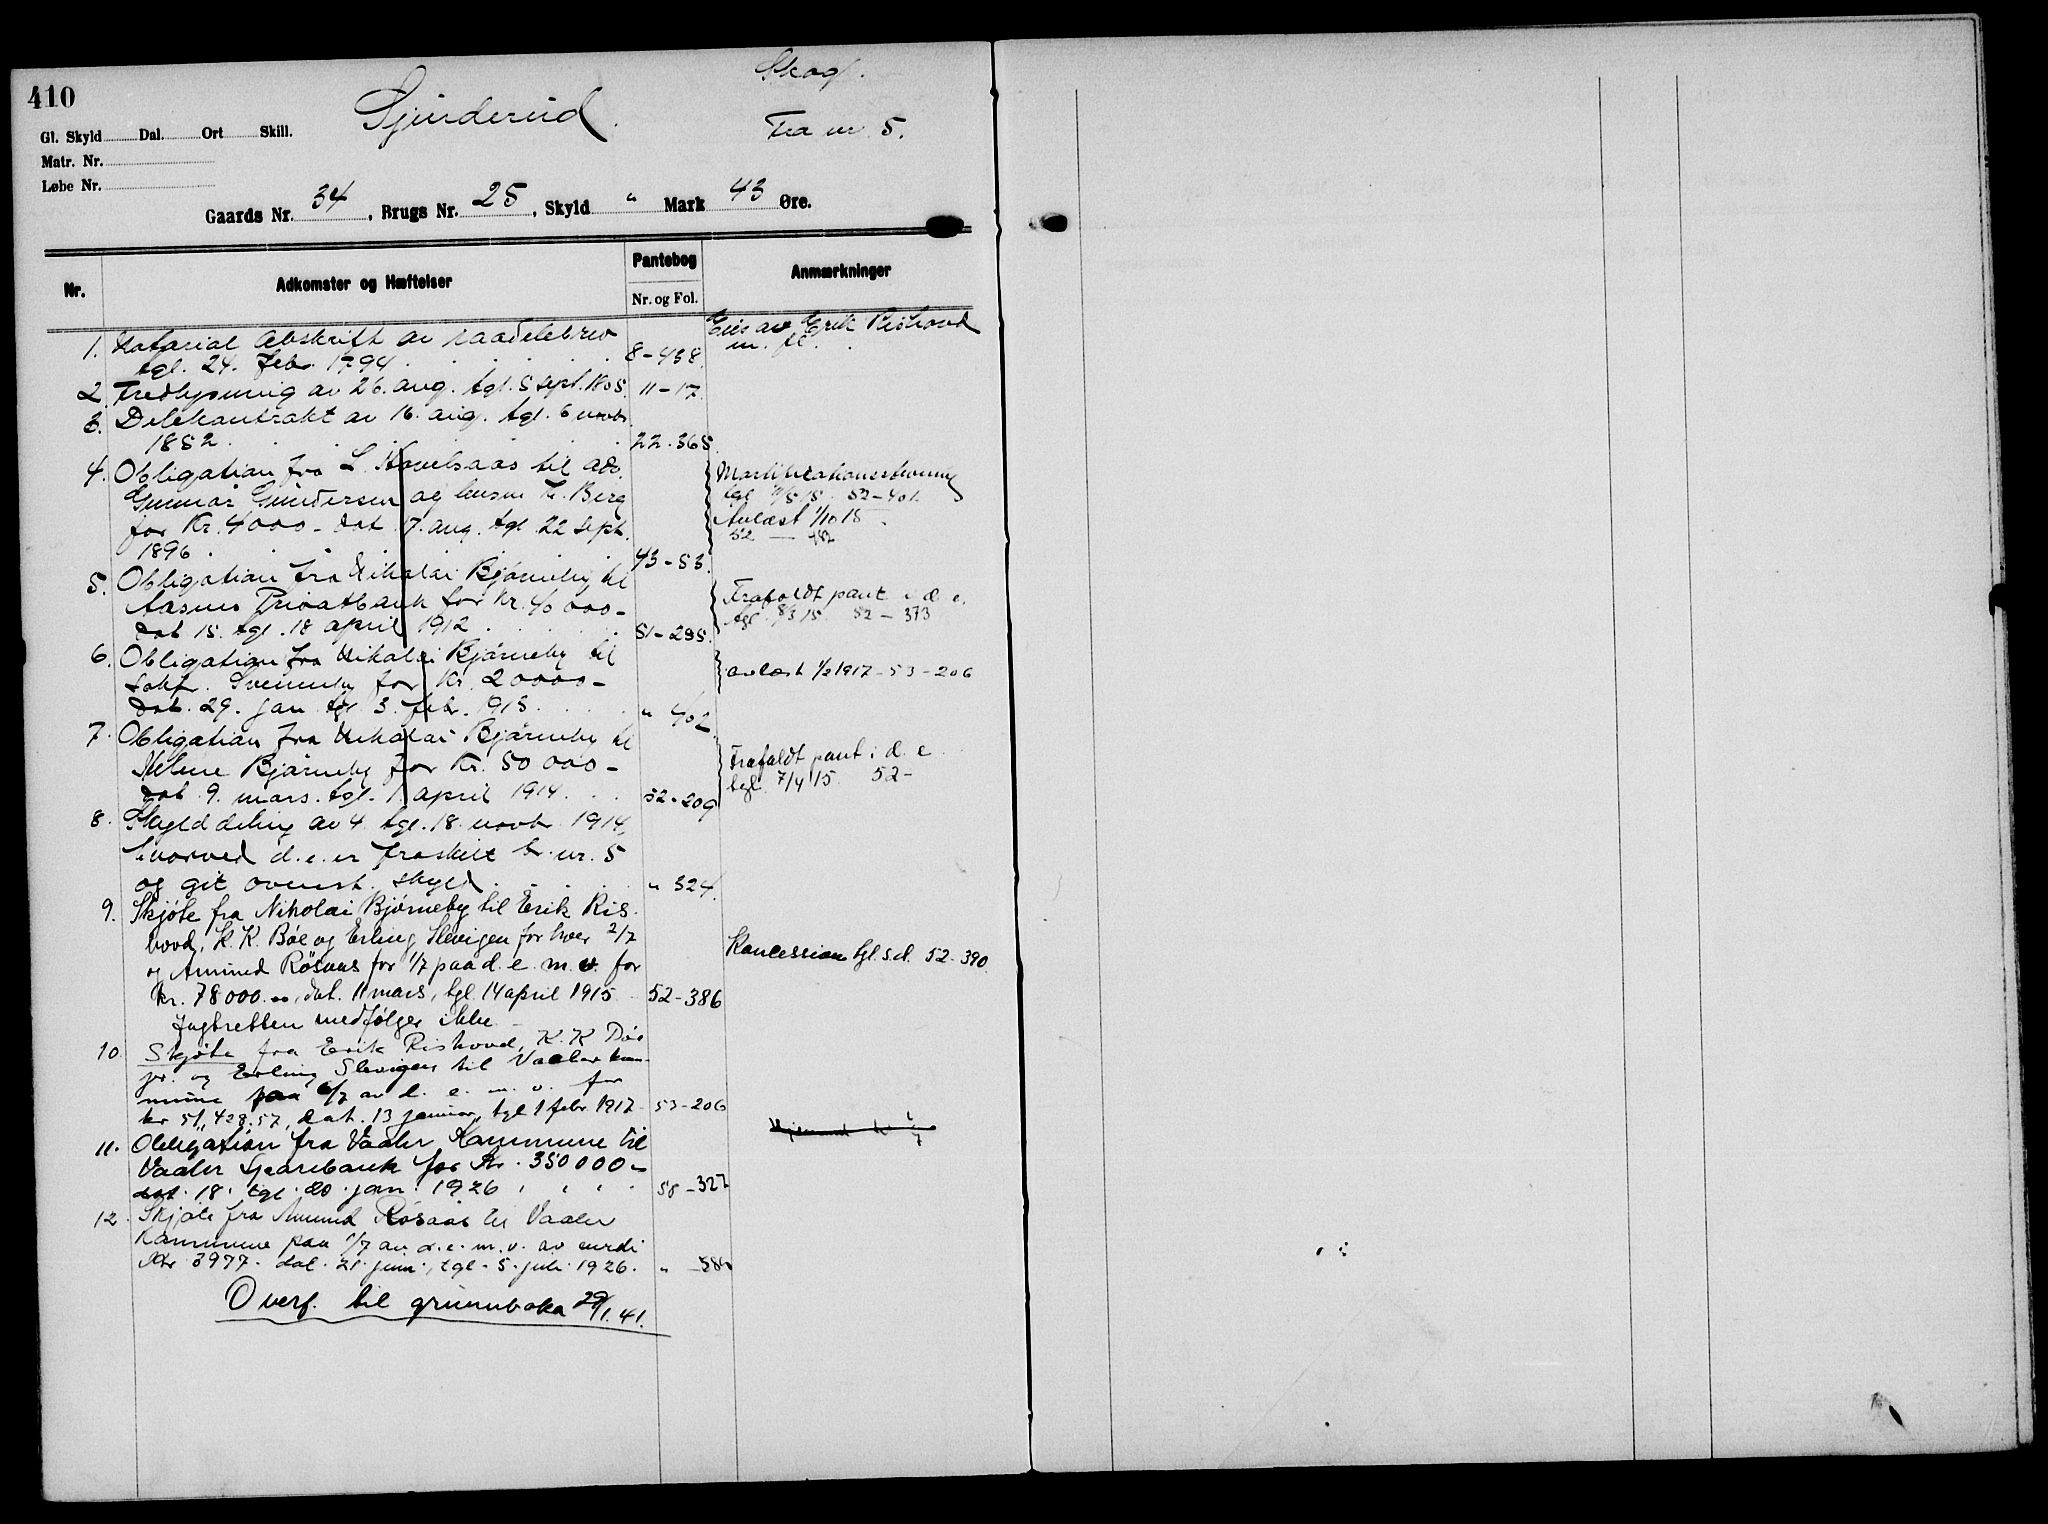 410
Skog.
Gjinderud.
Fra nr. 5.
Gl. Skyld Dal. Ort Skill.
Matr. Nr.
Løbe Nr.
Gaards Nr. 34, Brugs Nr. 25, Skyld " Mark 43 Øre.
Nr. Adkomster og Hæftelser Pantebog Anmærkninger
Nr. og Fol.
1. Notarial Abskrift av raadelebrev
tgl. 24. Febr. 1794. 8-438.
Eies av Erik Rishovd
m. fl.
2. Fredlysning av 26. aug. tgl. 5 sept. 1805. 11-17.
3. Delekontrakt av 16. aug. tgl. 6 novbr.
1852. 22-365.
4. Obligation fra L. Havelsaas til adv.
Gunnar Gundersen og lensm. Berg
for Kr. 4000- dat. 17. aug. tgl. 22 sept.
1896. 43-53.
Mortifikationsstevning
52-401.
Avlæst 1/10 15.
52 —
5. Obligation fra Nikolai Bjørneby til
Aasnes Privatbank for Kr. 40 000-
dat. 15. tgl. 18 april 1912. 51-295.
Frafaldt pant i d. e.
tgl. 8/3 15. 52-373
6. Obligation fra Nikolai Bjørneby til
Sakfr. Svenneby for Kr. 20000-
dat. 29. jan. tgl. 3. febr. 1913. " 402
avlæst 1/2 1917-53-206
7. Obligation fra Nikolai Bjørneby til
Helene Bjørneby for Kr. 50 000-
dat. 9. mars. tgl. 1 april 1914. 52-209
Frafaldt pant i d. e.
tgl. 7/4 15. 52-
8. Skylddeling av 4. tgl. 18. novbr. 1914,
hvorved d. e. er fraskilt br. nr. 5
og git ovenst. skyld. " 324.
9. Skjøte fra Nikolai Bjørneby til Erik Ris-
hovd, K. K. Bøe og Erling Slevigen for hver 2/7
og Amund Røsaas for 1/7 paa d. e. m. v. for
kr. 78000.00, dat. 11 mars, tgl. 14 april 1915. 52-386
Jagtretten medfølger ikke
Koncession tgl. s.d. 52-390
10. Skjøte fra Erik Rishovd, K. K. Bøe
jr. og Erling Slevigen til Vaaler kom-
mune paa 6/7 av d. e. m. v. for
kr 51,428,57, dat. 13 januar, tgl 1 febr. 1917. 53-206
11. Obligation fra Vaaler Kommune til
Vaaler Sparebank for Kr. 350000-
dat. 18. tgl. 20. jan. 1926 58-327
12. Skjøte fra Amund Røsaas til Vaaler
Kommune paa 1/7 av d. e. m. v. av verdi
Kr 3977. dat. 21. juni, tgl. 5. juli. 1926. "
Overf. til grunnboka 29/1. 41.